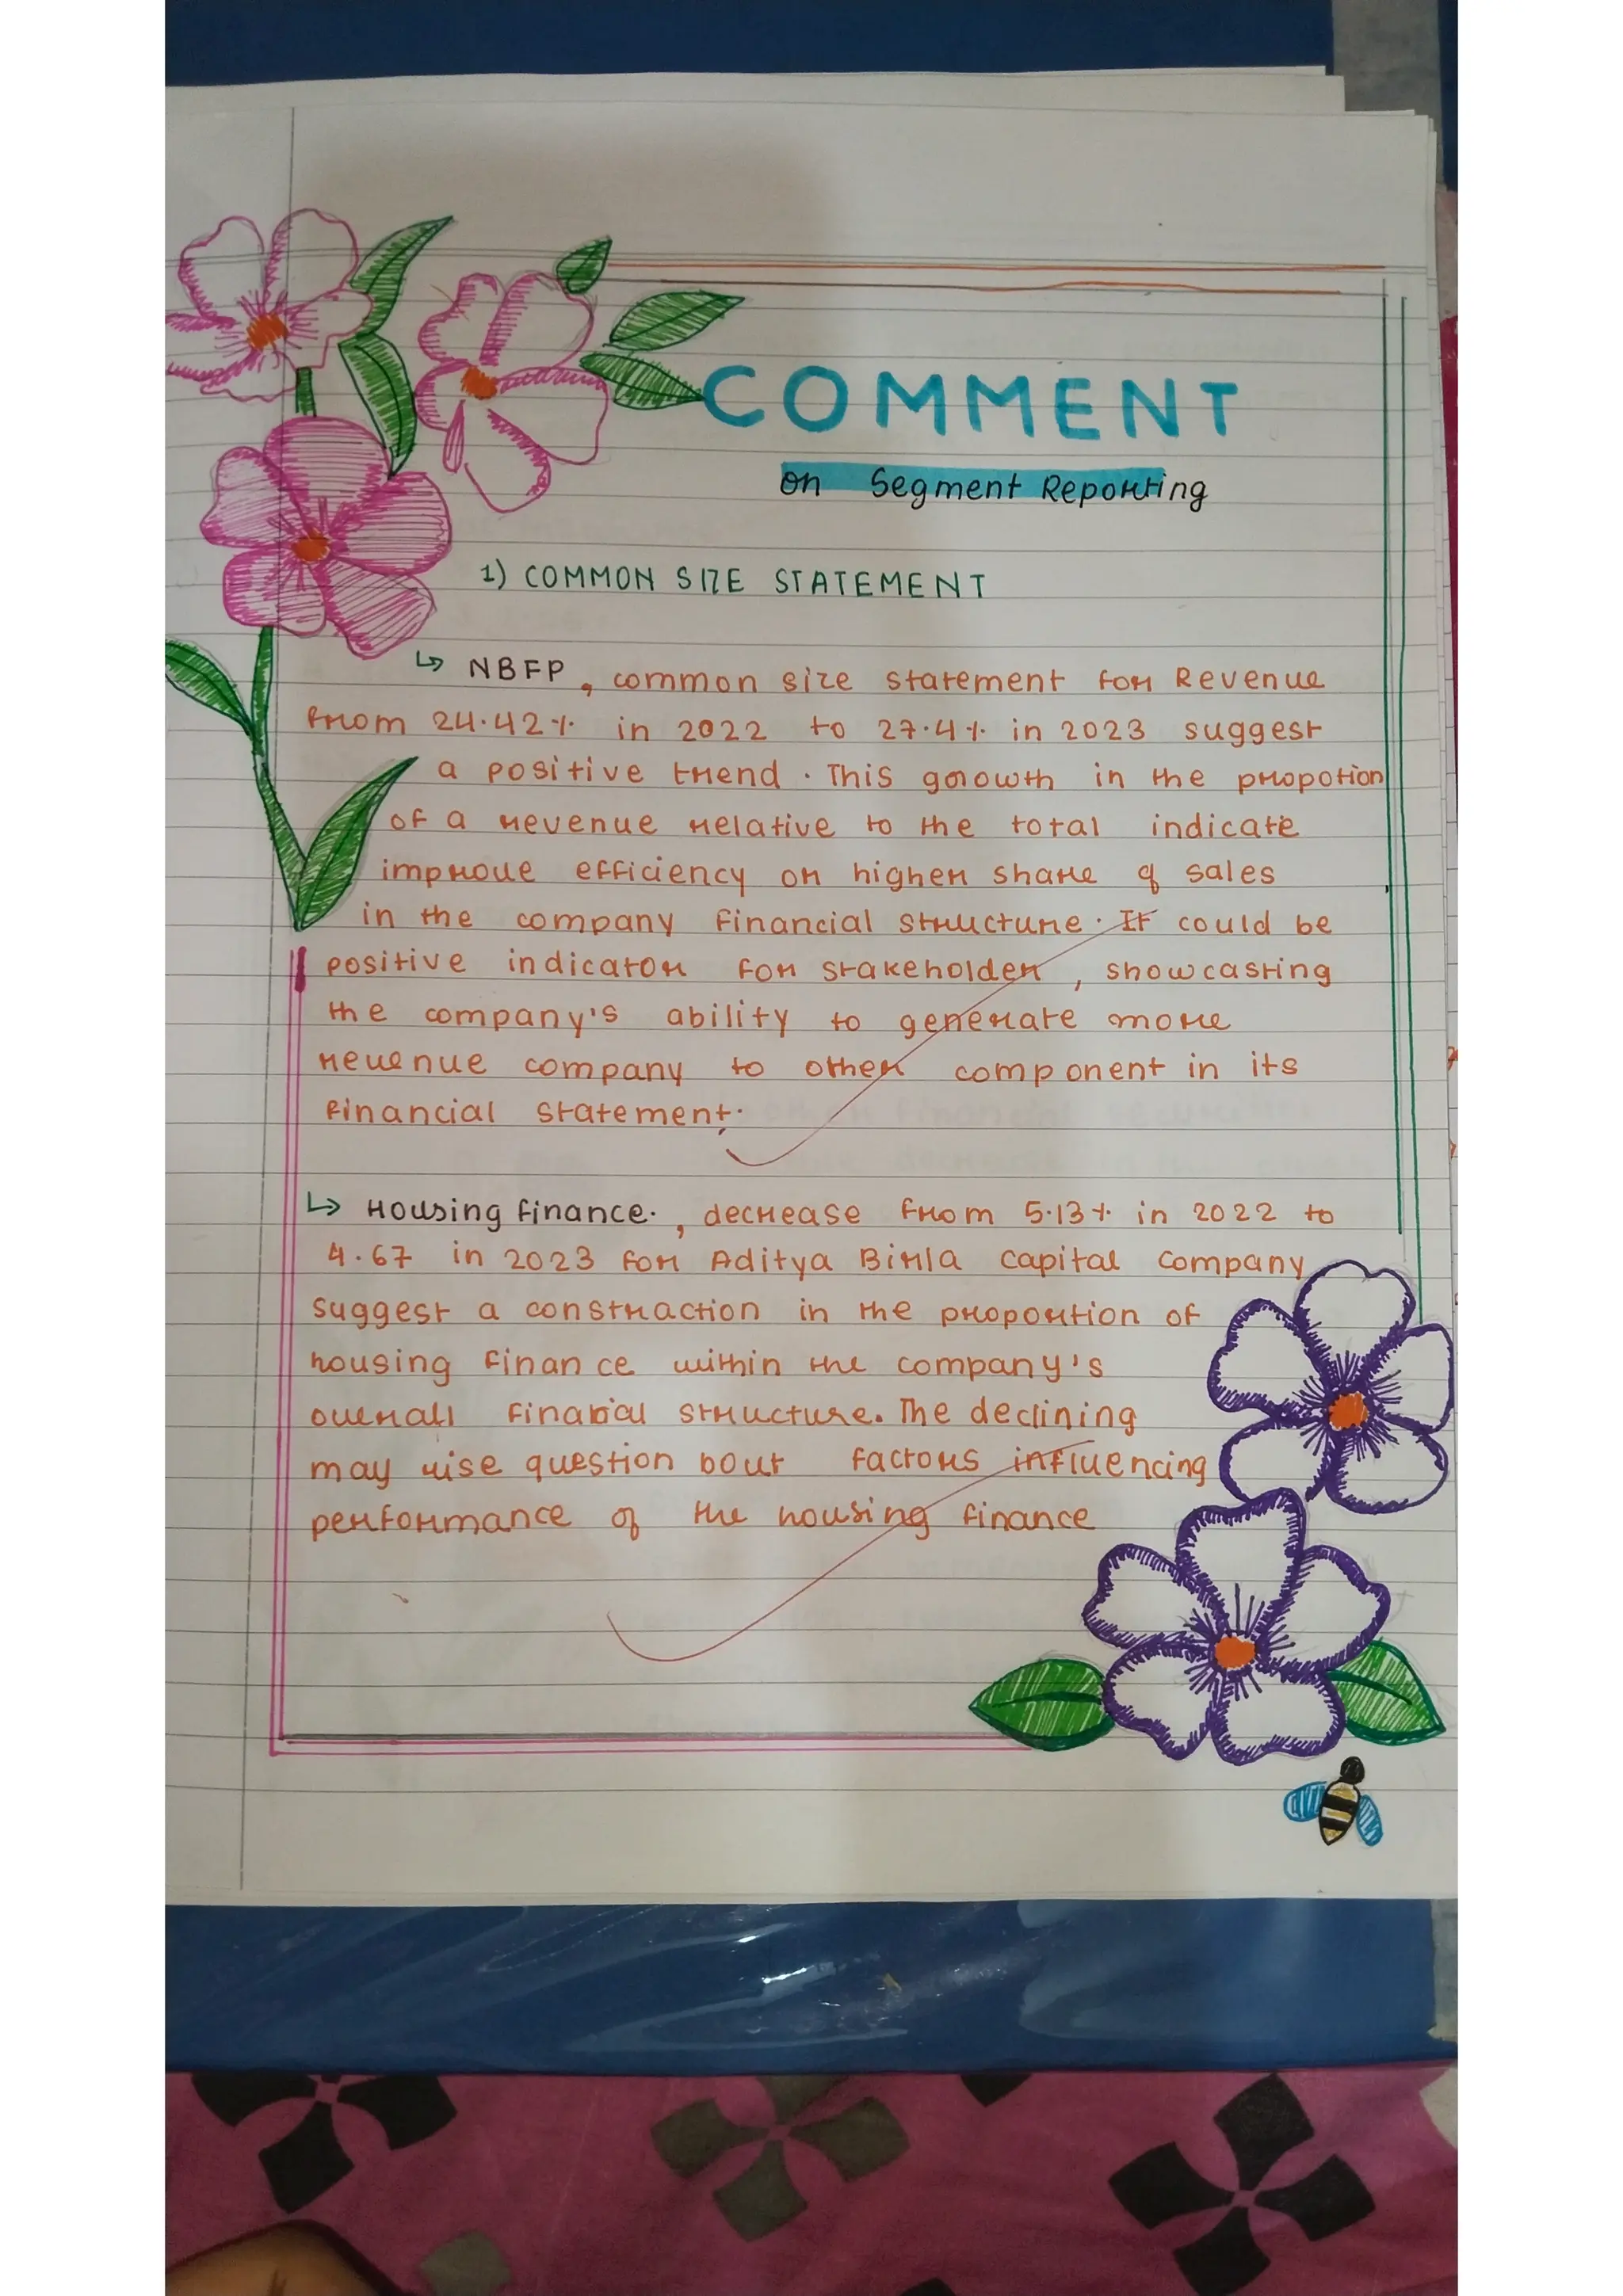 COMMENT
on Segment Reporting
1) COMMON SIZE STATEMENT
↳ NBFP, common size statement for Revenue
from 24.42% in 2022 to 27.4% in 2023 suggest
a positive trend. This growth in the propotion
of a revenue relative to the total indicate
improve efficiency or higher share of sales
in the company financial structure. It could be
positive indicator for stakeholder, showcasting
the company's ability to generate more
revenue company to other component in its
financial statement.
↳ Housing finance., decrease from 5.13% in 2022 to
4.67 in 2023 for Aditya Birla capital company
suggest a constraction in the proportion of
housing finance within the company's
overall structure. The declining
may rise question bout factors influencing
performance of the housing finance